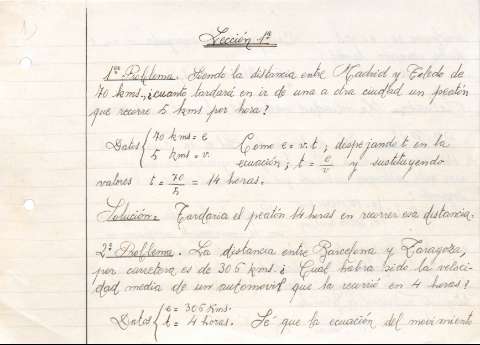 Lección 1ª
1er Problema. Siendo la distancia entre Madrid y Toledo de
70 kms., ¿cuanto tardará en ir de una a otra ciudad un peatón
que recorre 5 kms por hora?
Datos { 70 kms = e
5 kms = v.
Como e = v.t; despejando t en la
ecuación; t = e/v y sustituyendo
valores t = 70/5 = 14 horas.
Solución = Tardaria el peatón 14 horas en recorrer esa distancia.
2º Problema. La distancia entre Barcelona y Zaragoza,
por carretera es de 306 kms. ¿ Cual habra sido la veloci-
dad media de un automovil que la recorrió en 4 horas?
Datos { e = 306 kms.
t = 4 horas. Sé que la ecuación del movimiento